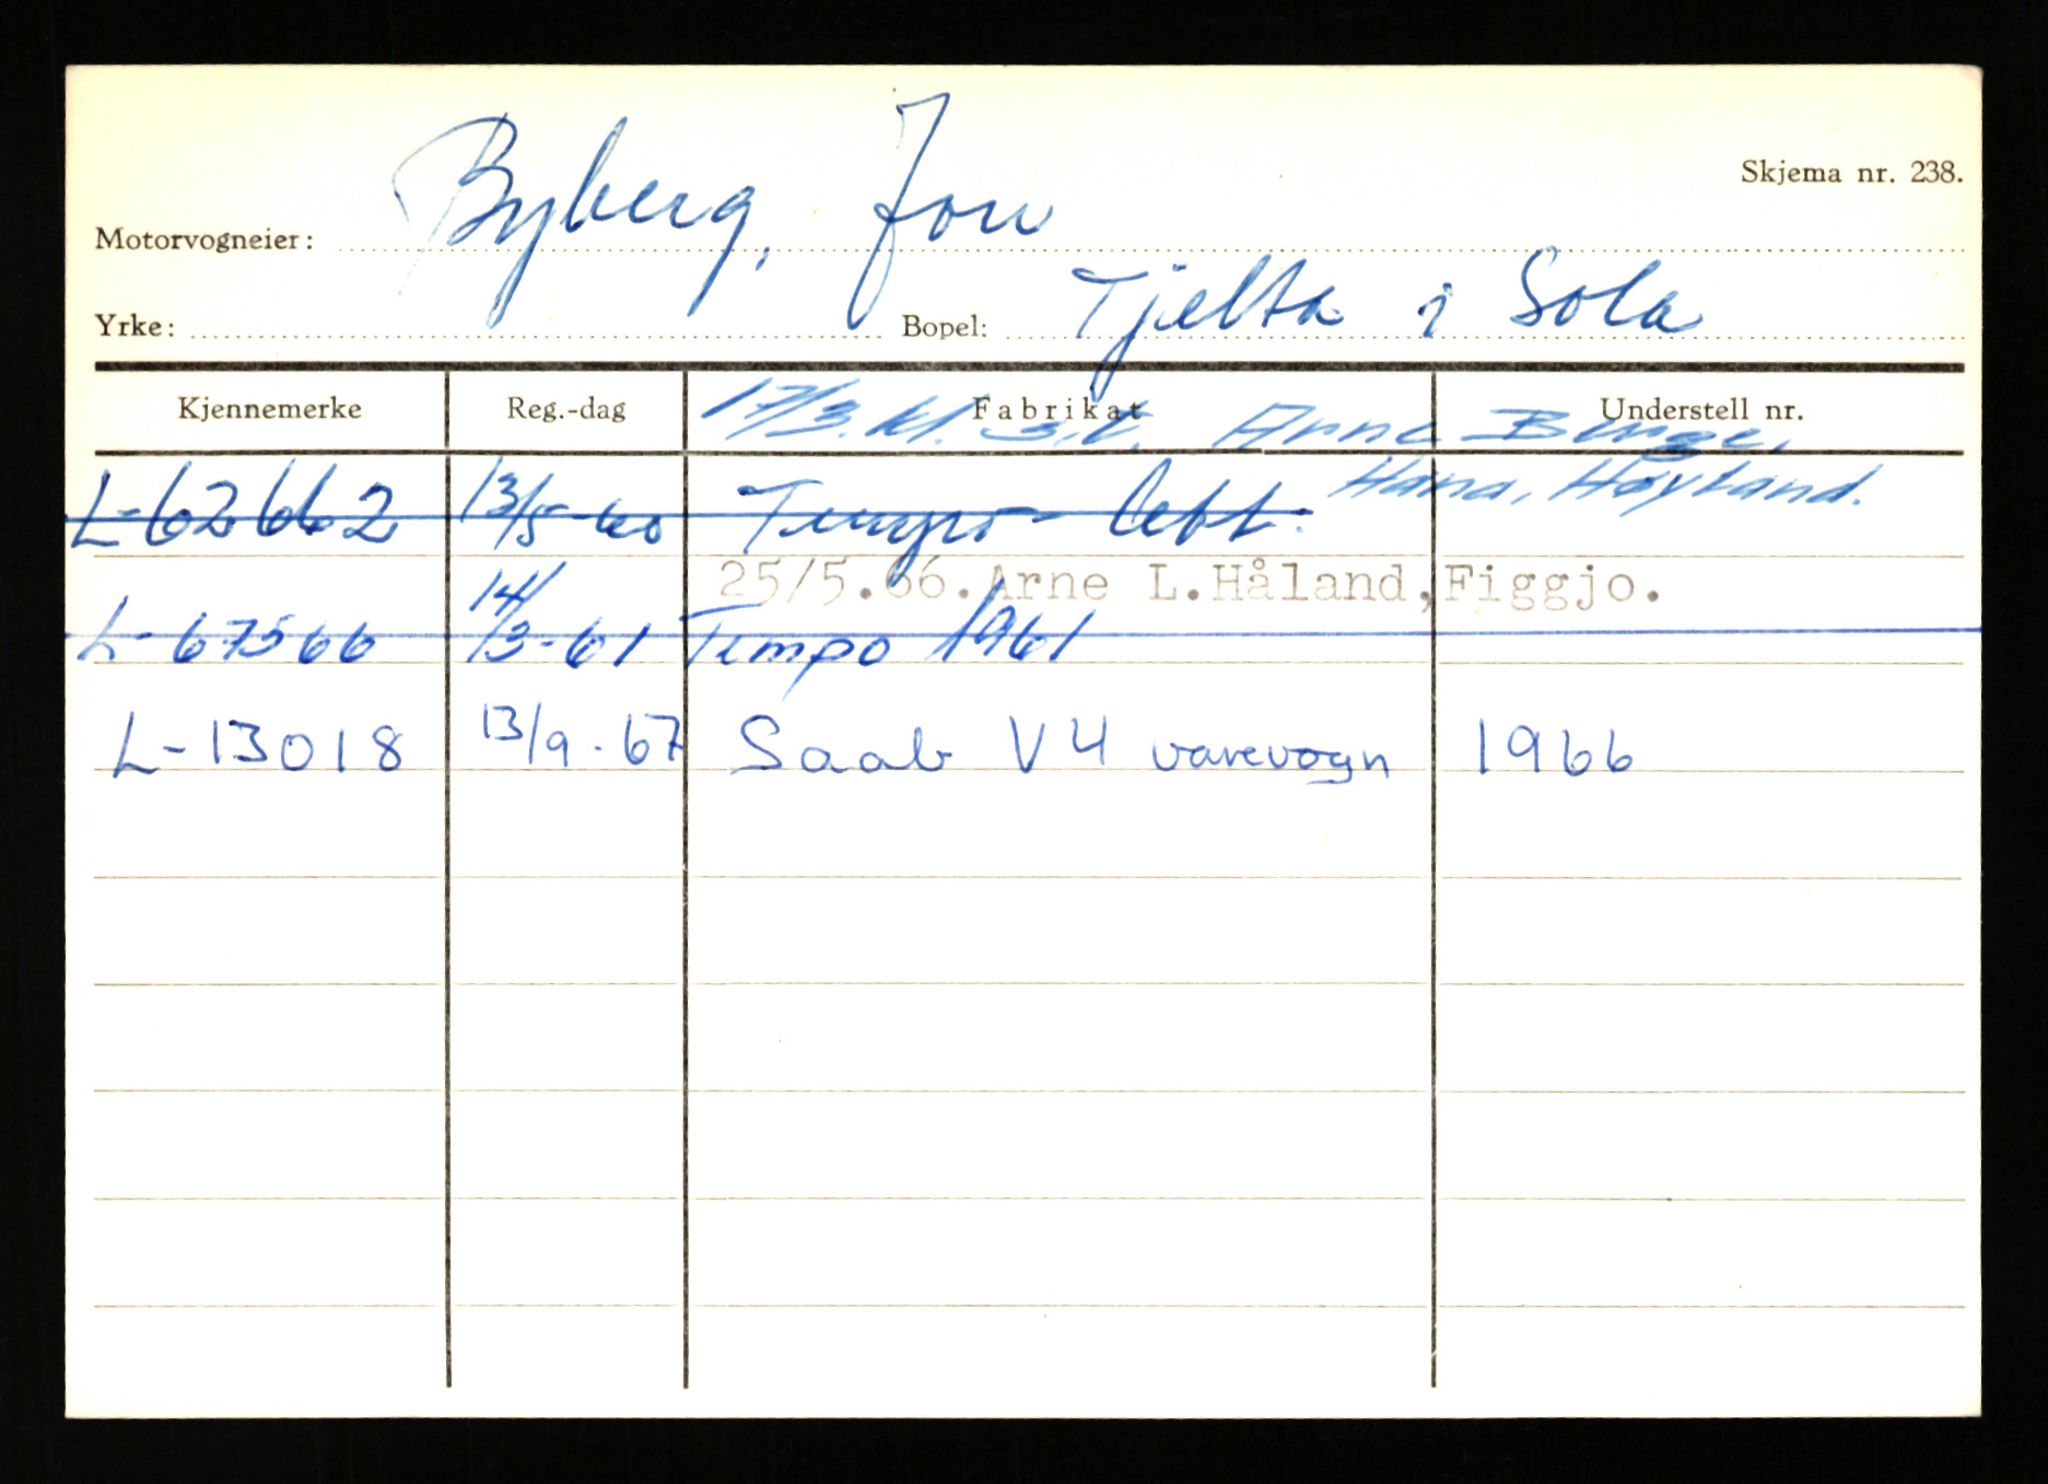 Skjema nr. 238.
Motorvogneier: Byberg, Jon
Yrke: Bopel: Tjelta i Sola
Kjennemerke Reg.-dag Fabrikat Understell nr.
17/3. Arne
Hana, Høyland.
L-62662 13/5-60 Tempo lett.
25/5.66. Arne L.Håland, Figgjo.
L-67566 14/3-61 Tempo 1961
L-13018 13/9-67 Saab V4 varevogn 1966